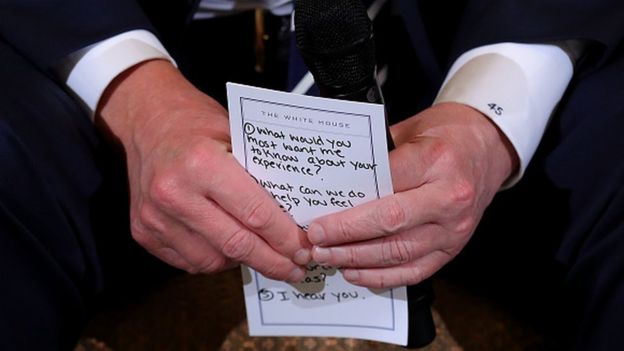 THE WHITE HOUSE
45
① What would you
most want me
to know about your
experience?
What can we do
help you feel
⑤ I hear you.